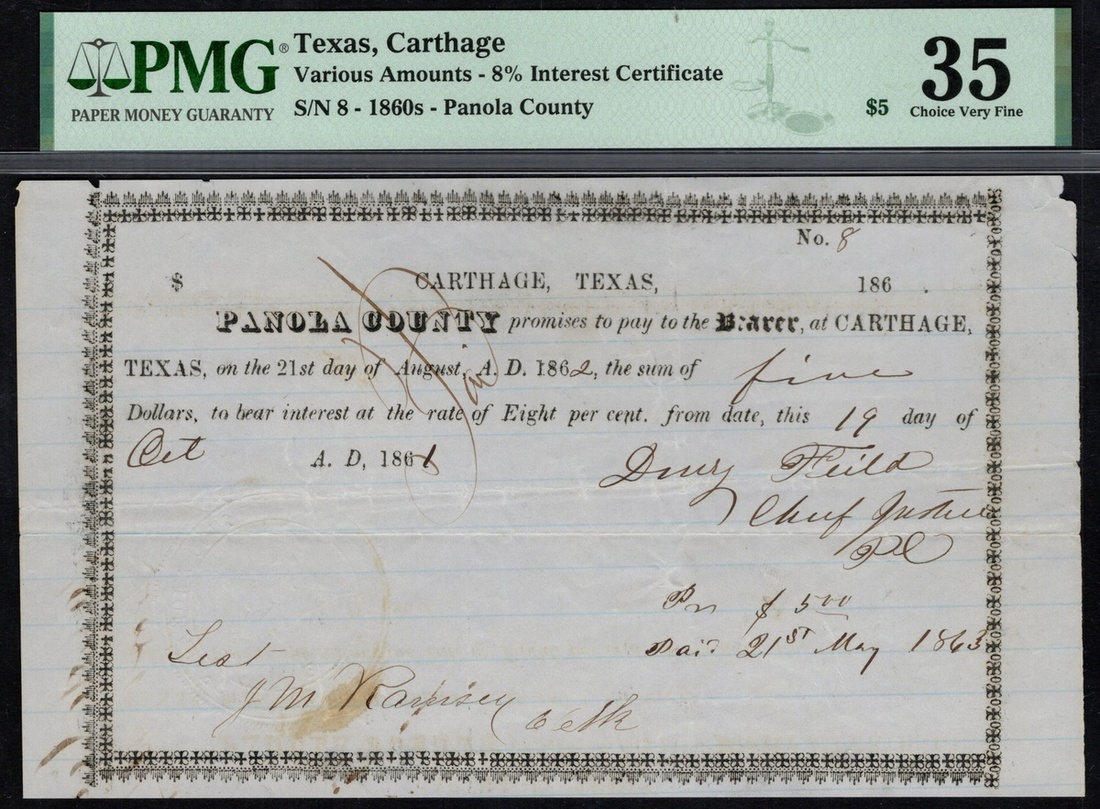 PMG® Texas, Carthage 35
Various Amounts - 8% Interest Certificate
PAPER MONEY GUARANTY S/N 8 - 1860s - Panola County $5 Choice Very Fine
No. 8
$ CARTHAGE, TEXAS, 186 .
PANOLA COUNTY promises to pay to the Bearer, at CARTHAGE,
TEXAS, on the 21st day of August, A. D. 1862, the sum of five
Dollars, to bear interest at the rate of Eight per cent. from date, this 19 day of
Oct A. D, 1861
Paid
Drury Feild
Chief Justice
PC
Pr $ 500
Paid 21ST May 1863
Test
J M Ramsey